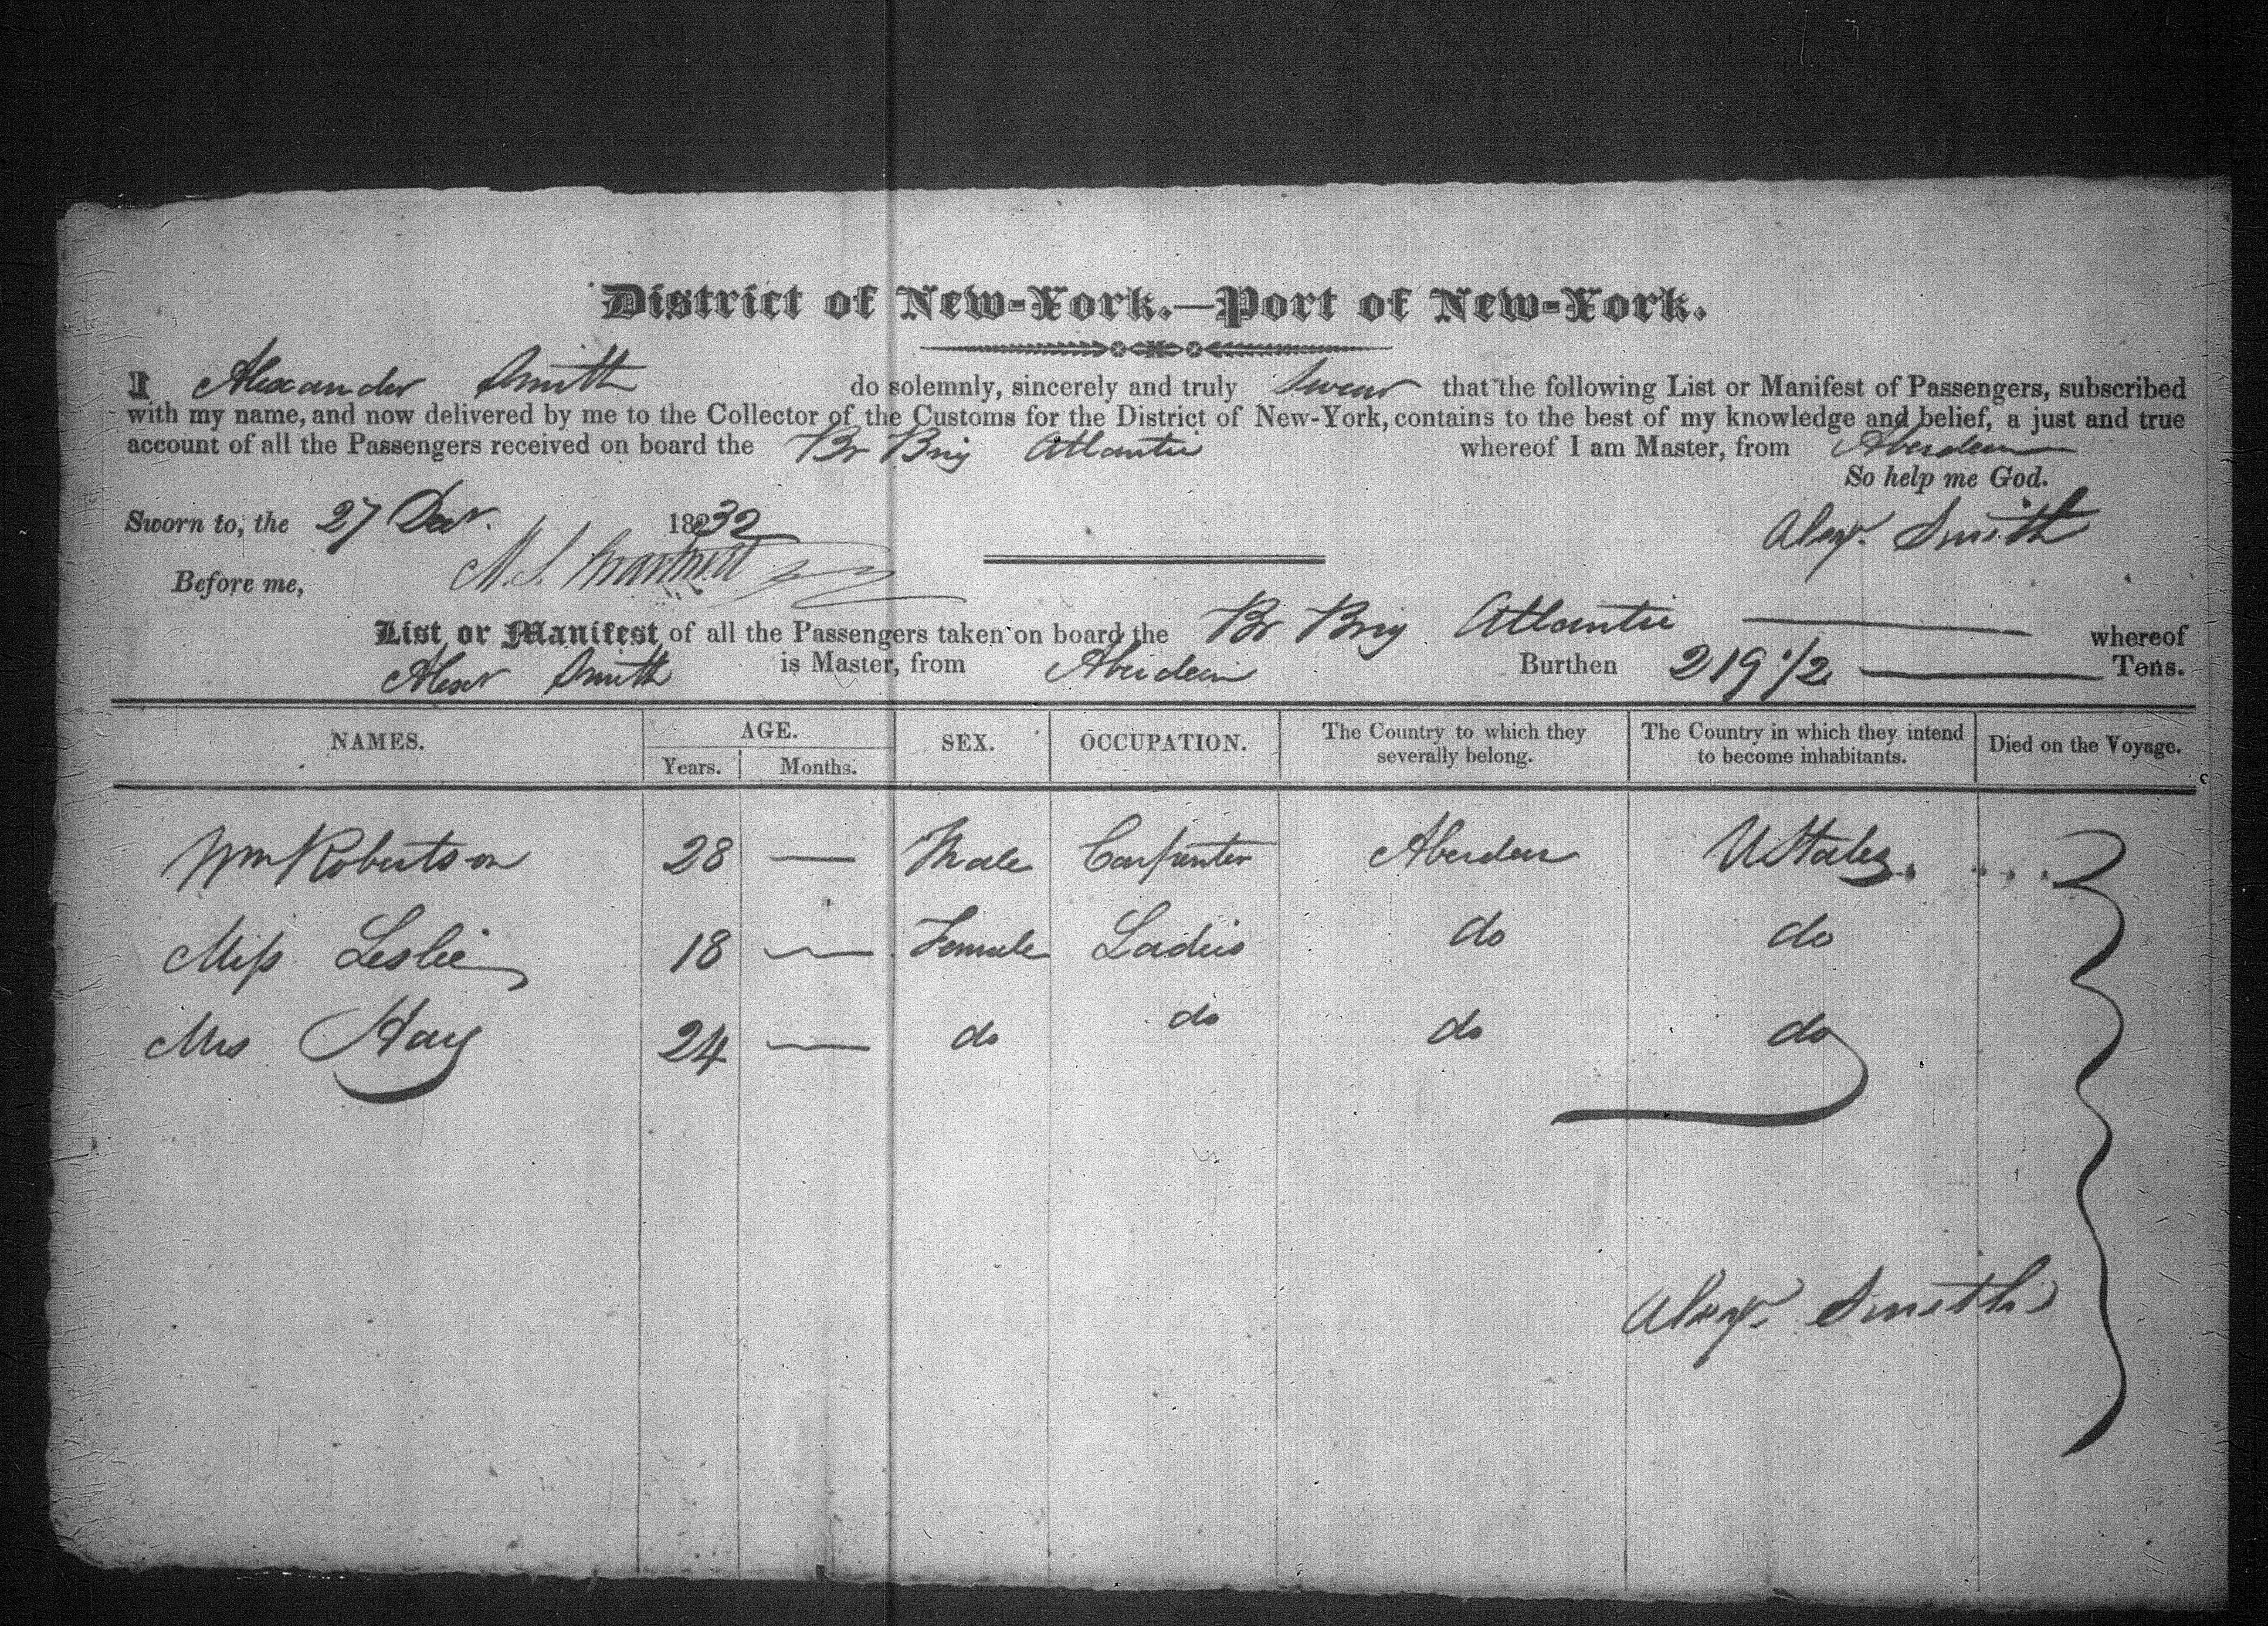 District of New-York.—Port of New-York.
I Alexander Smith do solemnly, sincerely and truly Swear that the following List or Manifest of Passengers, subscribed
with my name, and now delivered by me to the Collector of the Customs for the District of New-York, contains to the best of my knowledge and belief, a just and true
account of all the Passengers received on board the Br Brig Atlantic whereof I am Master, from Aberdeen
So help me God.
Sworn to, the 27 Decr. 1832
Alexr. Smith
Before me, M. S.
List or Manifest of all the Passengers taken on board the Br Brig Atlantic whereof
Alexr Smith is Master, from Aberdeen Burthen 219 1/2 Tons.
NAMES. AGE. SEX. OCCUPATION. The Country to which they severally belong. The Country in which they intend to become inhabitants. Died on the Voyage.
Years. Months.
Wm Robertson 28 — Male Carpenter Aberdeen UStates.
Miss Leslie 18 — Female Ladies do do
Mrs Hay 24 — do do do do
Alexr. Smith